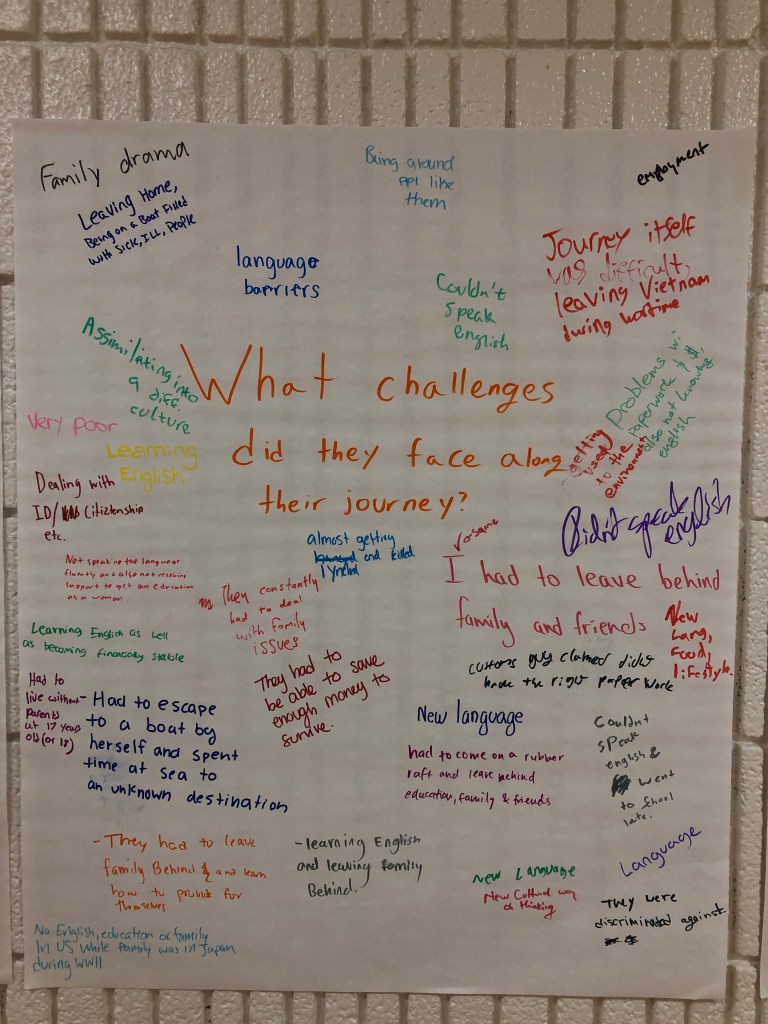 Family drama
Leaving Home,
Being on a Boat Filled
with Sick, ILL, People
Being around
ppl like
them
employment
language
barriers
Couldn't
speak
english
Journey itself
was difficult,
leaving Vietnam
during wartime
Assimilating into
a diff.
culture
What challenges
did they face along
their journey?
Problems w/
Paperwork & $,
also not knowing
english
getting
used
to the
environment
Very poor
Learning
English
Dealing with
ID/ Citiztenship
etc.
Didn't speak
english
almost getting
lynched and killed
Not speaking the language
fluently and also not receiving
support to get an education
as a woman
They constantly
had to deal
with family
issues
same
I had to leave behind
family and friends
New
Lang,
Food,
lifestyle.
Learning English as well
as becoming financially stable
customs guy claimed didn't
have the right paper work
They had to
be able to save
enough money to
survive.
Had to
live without
parents
at 17 years
old (or 18)
- Had to escape
to a boat by
herself and spent
time at sea to
an unknown destination
New language
had to come on a rubber
raft and leave behind
education, family & friends
Couldn't
speak
english &
went
to school
late.
- They had to leave
family Behind & and learn
how to provide for
themselves
- learning English
and leaving family
Behind.
New Language
New Cultural way
of thinking
Language
They were
discriminated against.
No English, education or family
In US while family was in Japan
during WWII